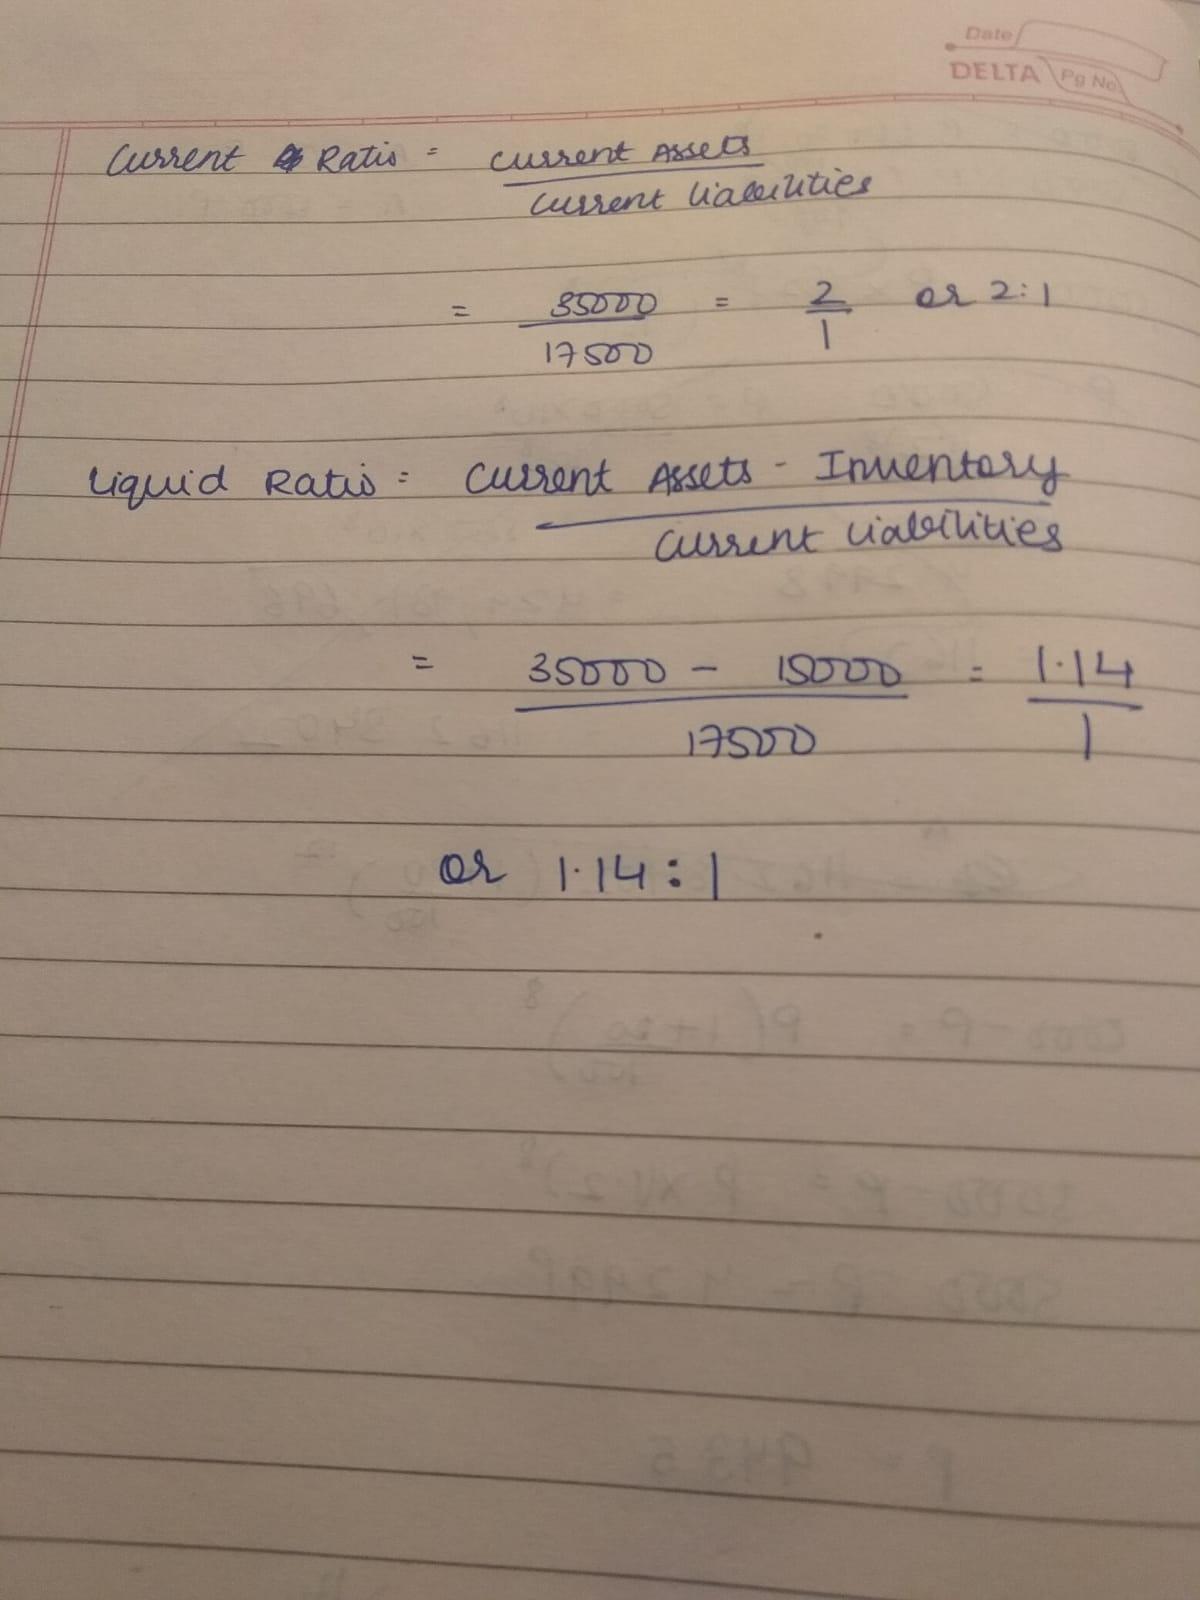 Date
DELTA Pg No
Current Ratio = Current Assets
Current liabilities
= 35000 = 2 or 2:1
17500 1
Liquid Ratio = Current Assets - Inventory
Current liabilities
= 35000 - 15000 = 1.14
17500 1
or 1.14 : 1